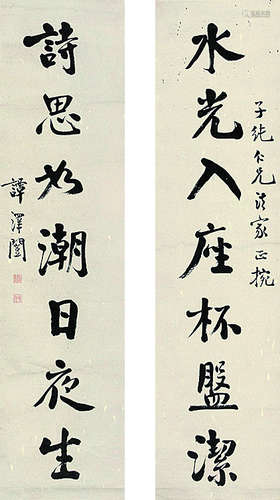 子纯仁兄法家正捥
水光入座杯盤潔
詩思如潮日夜生
譚澤闓